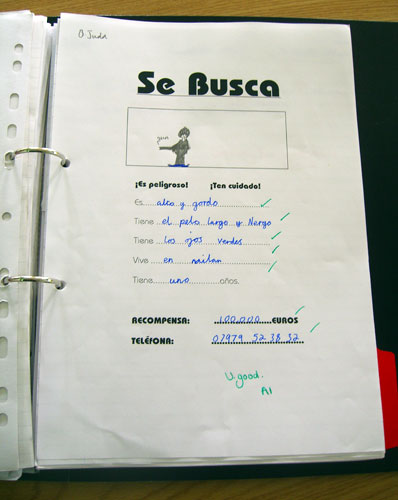 O Juda
Se Busca
gun
¡Es peligroso! ¡Ten cuidado!
Es.....alco y gordo
Tiene...el pelo largo y Nergo
Tiene...los ojos verdes
Vive...en milan
Tiene......uno........años.
RECOMPENSA: 100,000 EUROS
TELÉFONA: 07979 52 38 32
V. good.
A1